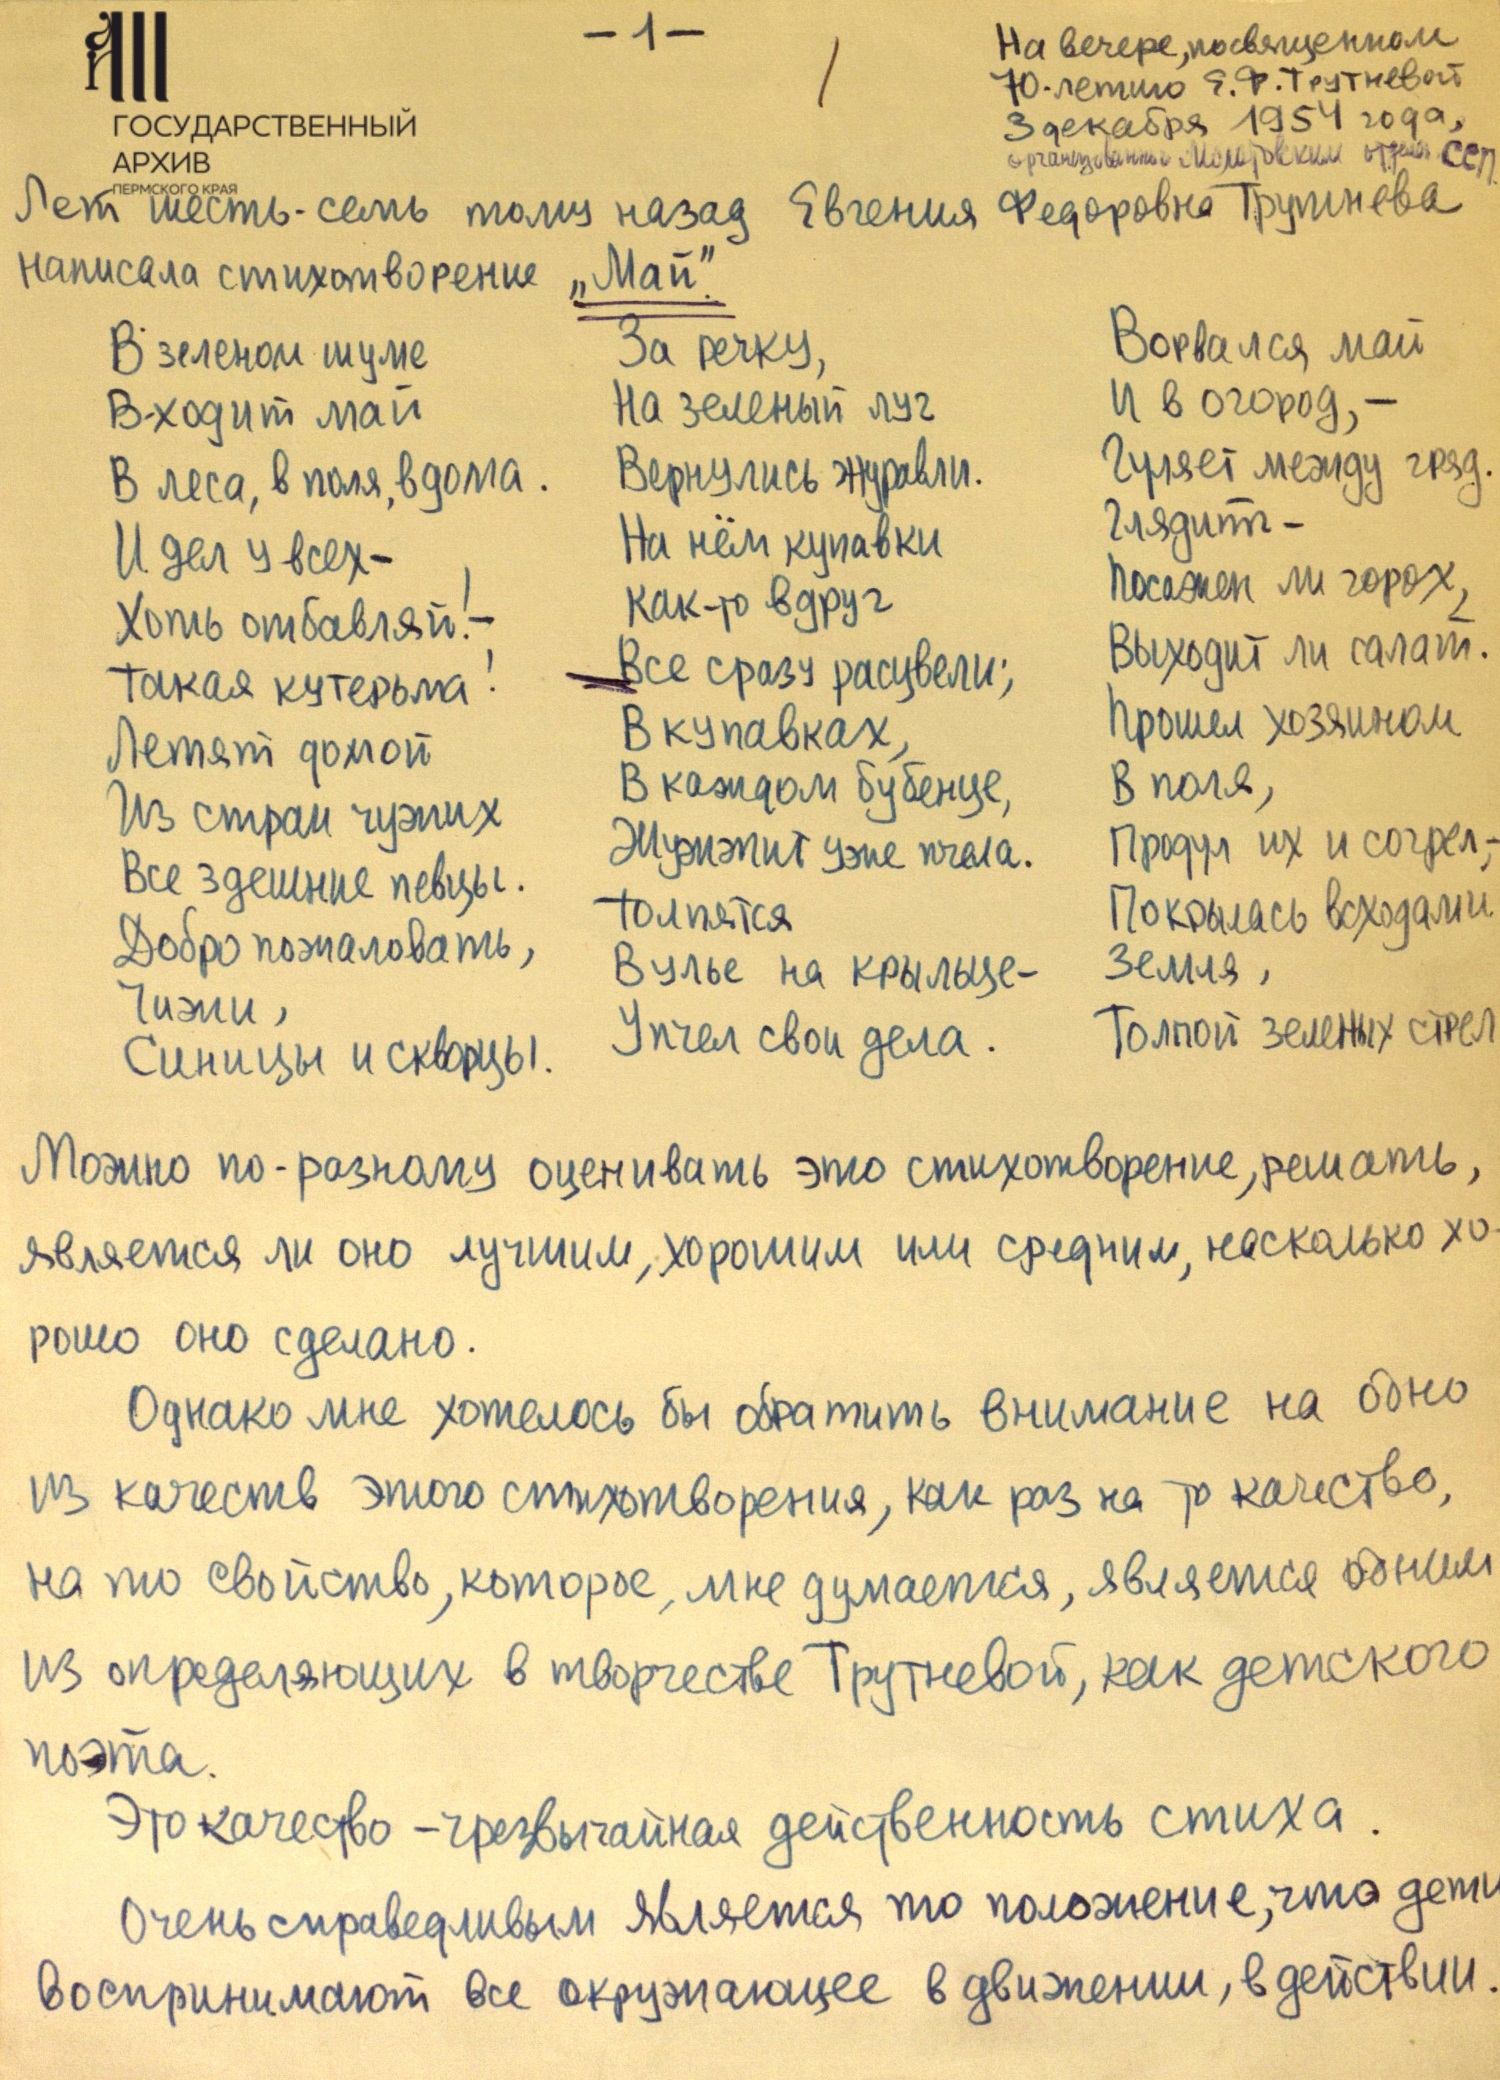 — 1 —
ГОСУДАРСТВЕННЫЙ
АРХИВ
ПЕРМСКОГО КРАЯ
На вечере, посвященном
70-летию Е.Ф. Трутневой
3 декабря 1954 года,
организованном Молотовским отдел. ССП.
Лет шесть-семь тому назад Евгения Федоровна Трутнева
написала стихотворение „Май".
В зеленом шуме
Входит май
В леса, в поля, в дома.
И дел у всех –
Хоть отбавляй! –
Такая кутерьма!
Летят домой
Из стран чужих
Все здешние певцы.
Добро пожаловать,
Чижи,
Синицы и скворцы.
За речку,
На зеленый луг
Вернулись журавли.
На нём купавки
Как-то вдруг
Все сразу расцвели;
В купавках,
В каждом бубенце,
Жужжит уже пчела.
Толпятся
В улье на крыльце –
У пчел свои дела.
Ворвался май
И в огород, –
Гуляет между гряд.
Глядит –
Посажен ли горох,
Выходит ли салат.
Прошел хозяином
В поля,
Продул их и согрел, –
Покрылась всходами
Земля,
Толпой зеленых стрел
Можно по-разному оценивать это стихотворение, решать,
является ли оно лучшим, хорошим или средним, насколько хо-
рошо оно сделано.
Однако мне хотелось бы обратить внимание на одно
из качеств этого стихотворения, как раз на то качество,
на то свойство, которое, мне думается, является одним
из определяющих в творчестве Трутневой, как детского
поэта.
Это качество – чрезвычайная действенность стиха.
Очень справедливым является то положение, что дети
воспринимают все окружающее в движении, в действии.